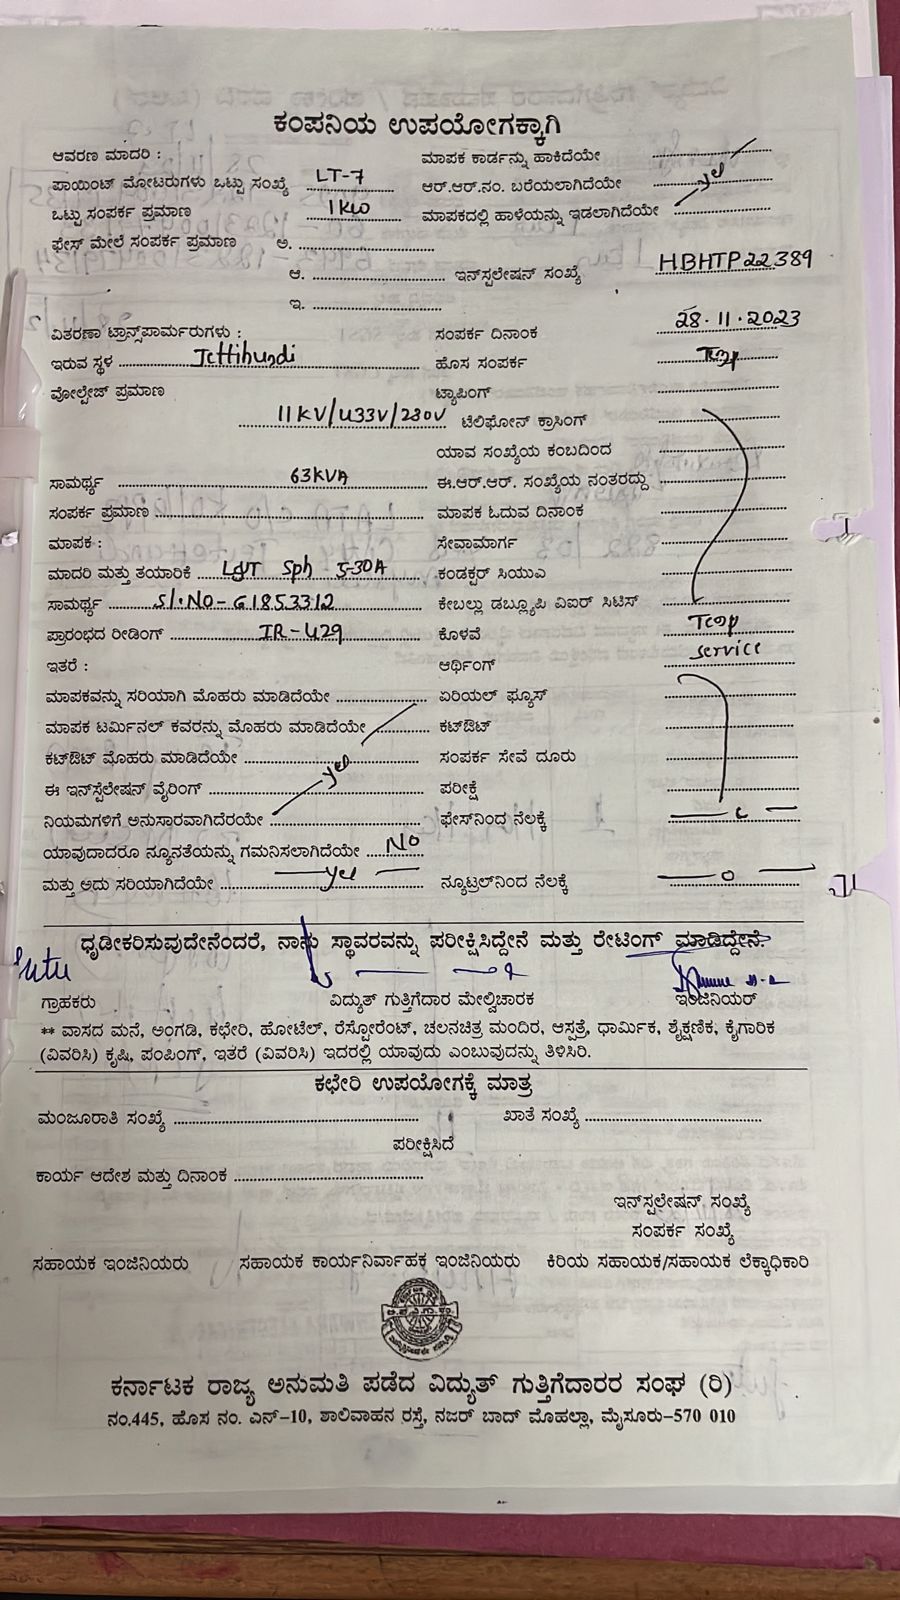 ಕಂಪನಿಯ ಉಪಯೋಗಕ್ಕಾಗಿ
ಆವರಣ ಮಾದರಿ : ಮಾಪಕ ಕಾರ್ಡನ್ನು ಹಾಕಿದೆಯೇ
ಪಾಯಿಂಟ್ ಮೋಟರುಗಳು ಒಟ್ಟು ಸಂಖ್ಯೆ LT-7 ಆರ್.ಆರ್.ನಂ. ಬರೆಯಲಾಗಿದೆಯೇ yes
ಒಟ್ಟು ಸಂಪರ್ಕ ಪ್ರಮಾಣ 1KW ಮಾಪಕದಲ್ಲಿ ಹಾಳೆಯನ್ನು ಇಡಲಾಗಿದೆಯೇ
ಫೇಸ್ ಮೇಲೆ ಸಂಪರ್ಕ ಪ್ರಮಾಣ ಅ.
ಆ. ಇನ್‌ಸ್ಟಲೇಷನ್ ಸಂಖ್ಯೆ HBHTP22389
ಇ.
ವಿತರಣಾ ಟ್ರಾನ್ಸ್‌ಪಾರ್ಮರುಗಳು : ಸಂಪರ್ಕ ದಿನಾಂಕ 28.11.2023
ಇರುವ ಸ್ಥಳ Jettihundi ಹೊಸ ಸಂಪರ್ಕ Temp
ವೋಲ್ಟೇಜ್ ಪ್ರಮಾಣ ಟ್ಯಾಪಿಂಗ್
11KV/433V/230V ಟೆಲಿಫೋನ್ ಕ್ರಾಸಿಂಗ್
ಯಾವ ಸಂಖ್ಯೆಯ ಕಂಬದಿಂದ
ಸಾಮರ್ಥ್ಯ 63KVA ಈ.ಆರ್.ಆರ್. ಸಂಖ್ಯೆಯ ನಂತರದ್ದು
ಸಂಪರ್ಕ ಪ್ರಮಾಣ ಮಾಪಕ ಓದುವ ದಿನಾಂಕ
ಮಾಪಕ : ಸೇವಾಮಾರ್ಗ
ಮಾದರಿ ಮತ್ತು ತಯಾರಿಕೆ L&T Sph 5-30A ಕಂಡಕ್ಟರ್ ಸಿಯುಎ
ಸಾಮರ್ಥ್ಯ Sl.No-61853312 ಕೇಬಲ್ಲು ಡಬ್ಲ್ಯೂಪಿ ವಿಐರ್ ಸಿಟಿಸ್
ಪ್ರಾರಂಭದ ರೀಡಿಂಗ್ IR-429 ಕೊಳವೆ Temp
ಇತರೆ : ಆರ್ಥಿಂಗ್ service
ಮಾಪಕವನ್ನು ಸರಿಯಾಗಿ ಮೊಹರು ಮಾಡಿದೆಯೇ ಏರಿಯಲ್ ಫ್ಯೂಸ್
ಮಾಪಕ ಟರ್ಮಿನಲ್ ಕವರನ್ನು ಮೊಹರು ಮಾಡಿದೆಯೇ ಕಟ್‌ಔಟ್
ಕಟ್‌ಔಟ್ ಮೊಹರು ಮಾಡಿದೆಯೇ ಸಂಪರ್ಕ ಸೇವೆ ದೂರು
ಈ ಇನ್‌ಸ್ಟೆಲೇಷನ್ ವೈರಿಂಗ್ yes ಪರೀಕ್ಷೆ
ನಿಯಮಗಳಿಗೆ ಅನುಸಾರವಾಗಿದೆರಯೇ ಫೇಸ್‌ನಿಂದ ನೆಲಕ್ಕೆ
ಯಾವುದಾದರೂ ನ್ಯೂನತೆಯನ್ನು ಗಮನಿಸಲಾಗಿದೆಯೇ NO
ಮತ್ತು ಅದು ಸರಿಯಾಗಿದೆಯೇ yes ನ್ಯೂಟ್ರಲ್‌ನಿಂದ ನೆಲಕ್ಕೆ
ಧೃಡೀಕರಿಸುವುದೇನೆಂದರೆ, ನಾನು ಸ್ಥಾವರವನ್ನು ಪರೀಕ್ಷಿಸಿದ್ದೇನೆ ಮತ್ತು ರೇಟಿಂಗ್ ಮಾಡಿದ್ದೇನೆ.
ಗ್ರಾಹಕರು ವಿದ್ಯುತ್ ಗುತ್ತಿಗೆದಾರ ಮೇಲ್ವಿಚಾರಕ ಇಂಜಿನಿಯರ್
** ವಾಸದ ಮನೆ, ಅಂಗಡಿ, ಕಛೇರಿ, ಹೋಟೆಲ್, ರೆಸ್ಟೋರೆಂಟ್, ಚಲನಚಿತ್ರ ಮಂದಿರ, ಆಸ್ಪತ್ರೆ, ಧಾರ್ಮಿಕ, ಶೈಕ್ಷಣಿಕ, ಕೈಗಾರಿಕ
(ವಿವರಿಸಿ) ಕೃಷಿ, ಪಂಪಿಂಗ್, ಇತರೆ (ವಿವರಿಸಿ) ಇದರಲ್ಲಿ ಯಾವುದು ಎಂಬುವುದನ್ನು ತಿಳಿಸಿರಿ.
ಕಛೇರಿ ಉಪಯೋಗಕ್ಕೆ ಮಾತ್ರ
ಮಂಜೂರಾತಿ ಸಂಖ್ಯೆ ಖಾತೆ ಸಂಖ್ಯೆ
ಪರೀಕ್ಷಿಸಿದೆ
ಕಾರ್ಯ ಆದೇಶ ಮತ್ತು ದಿನಾಂಕ
ಇನ್‌ಸ್ಟಲೇಷನ್ ಸಂಖ್ಯೆ
ಸಂಪರ್ಕ ಸಂಖ್ಯೆ
ಸಹಾಯಕ ಇಂಜಿನಿಯರು ಸಹಾಯಕ ಕಾರ್ಯನಿರ್ವಾಹಕ ಇಂಜಿನಿಯರು ಕಿರಿಯ ಸಹಾಯಕ/ಸಹಾಯಕ ಲೆಕ್ಕಾಧಿಕಾರಿ
ಕರ್ನಾಟಕ ರಾಜ್ಯ ಅನುಮತಿ ಪಡೆದ ವಿದ್ಯುತ್ ಗುತ್ತಿಗೆದಾರರ ಸಂಘ (ರಿ)
ನಂ.445, ಹೊಸ ನಂ. ಎನ್-10, ಶಾಲಿವಾಹನ ರಸ್ತೆ, ನಜರ್ ಬಾದ್ ಮೊಹಲ್ಲಾ, ಮೈಸೂರು-570 010